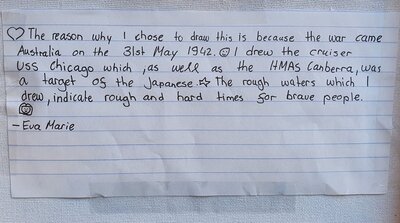 ♡ The reason why I chose to draw this is because the war came
Australia on the 31st May 1942. ☺ I drew the cruiser
USS Chicago which , as well as the HMAS Canberra, was
a target of the Japanese. ☆ The rough waters which I
drew, indicate rough and hard times for brave people.
– Eva Marie